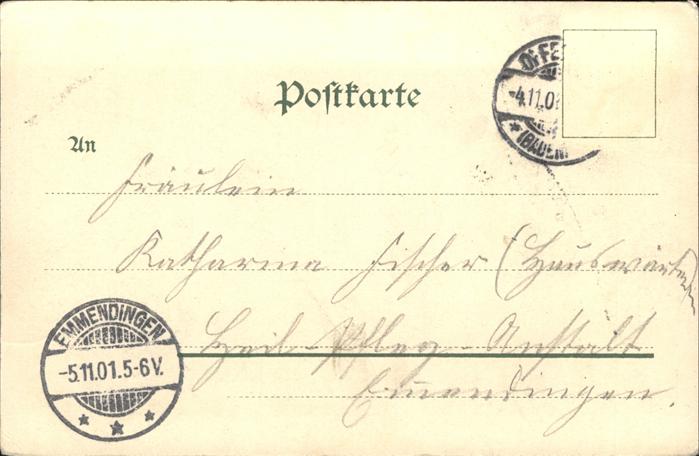 Postkarte
OFFE
-4.11.01
(BADEN)
An
Fräulein
Katharina Fischer (Hauswärterin
Heil Pfleg-Anstalt
Emmendingen.
EMMENDINGEN
-5.11.01.5-6V.